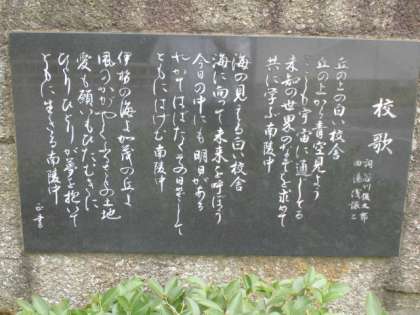 校歌
詞 谷川俊太郎
曲 湯浅譲二
丘の上の白い校舎
丘の上から青空見よう
こころは宇宙に通じてる
未知の世界のなぞを求めて
共に学ぶ南陵中
海の見える白い校舎
海に向って未来を呼ぼう
今日の中にも明日がある
れかてはばたくその日をめざして
ともにはげむ南陵中
伊勢の海よ
風のかがやくふるさとの土地
愛も願いもひたむきに
ひとりひとりが夢を抱いて
ともに生きる南陵中